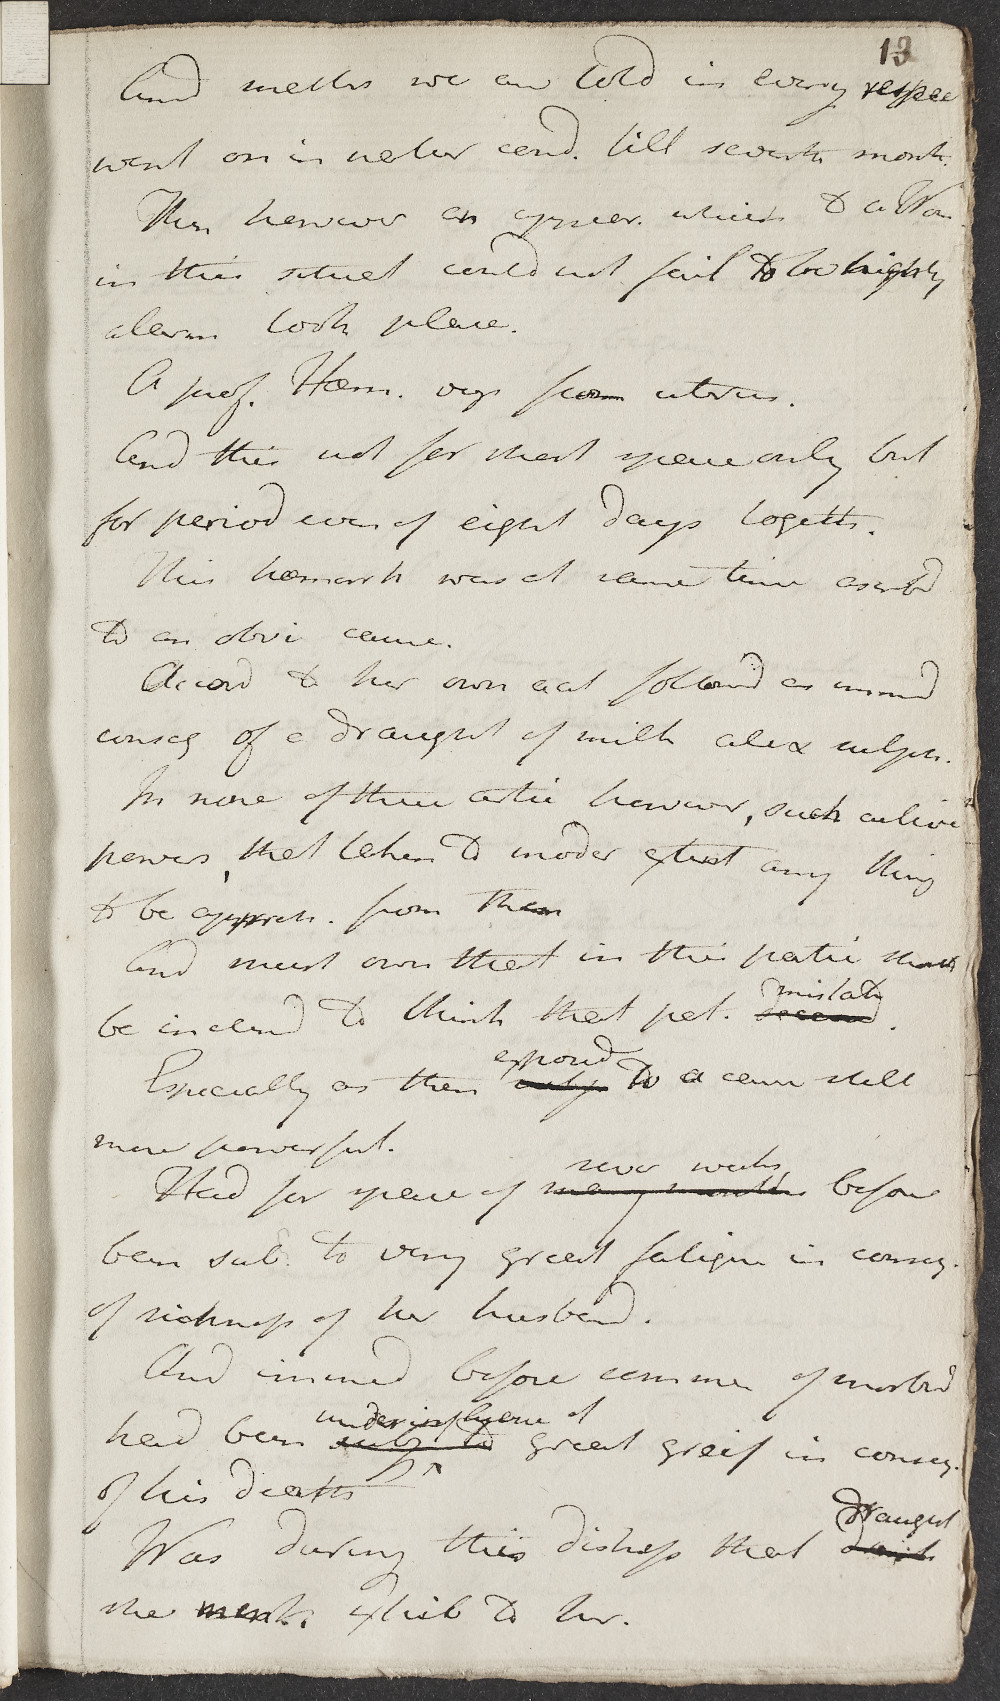 13
And matters we are told in every respec
went on in natur cond. till seventh month.
Then however an appear. which to a Wom
in this situat could not fail to be highly
alarm took place.
A prof. Hæm. vig from uterus.
And this not for short space only but
for period even of eight days togeth.
This hæmorrh was at same time ascrbd
to an obvi cause.
Accord to her own acct followd as immed
conseq of a draught of milk alex sulph.
In none of these artic however, such active
powers, that taken to moder extent any thing
to be appreh. from them
And must own that in this patie
be inclend to think that pat. mistak
Especially as then exposd to a cause still
more powerful.
Had for space of sever weeks before
been sub. to very great fatigue in conseq.
of sickness of her husband.
And immed before commen of morbid
had been under influence of great greif in conseq.
of his death
Was during this distress that draught
she exhib to her.